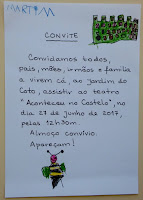 MARTIM
CONVITE
Convidamos todos,
pais, mães, irmãos e família
a virem cá, ao jardim do
Coto, assistir ao teatro
"Aconteceu no Castelo", no
dia 27 de junho de 2017,
pelas 12h30m.
Almoço convívio.
Apareçam!